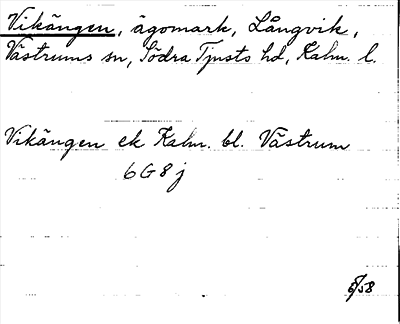 Vikängen, ägomark, Långvik,
Västrums sn, Södra Tjusts hd, Kalm. l.
Vikängen ek Kalm. bl. Västrum
6G8j
6/58